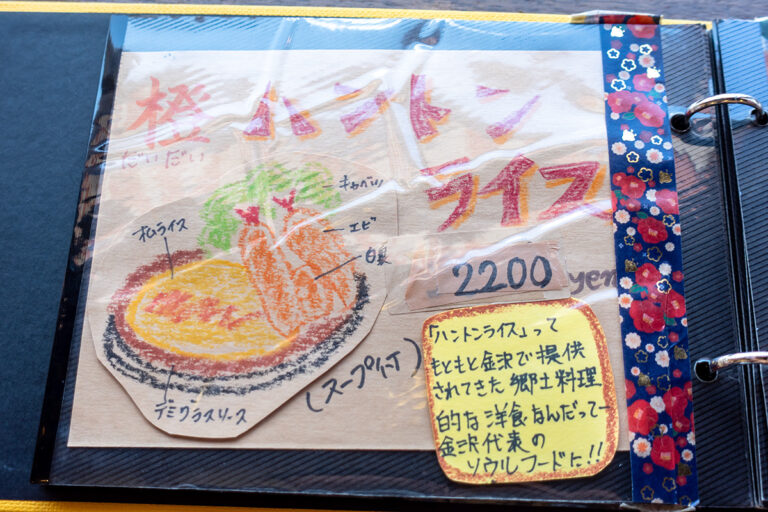 橙 ハントン
だいだい
ライス
キャベツ
エビ
オムライス
白身
2200 yen
デミグラスソース
(スープ付)
「ハントンライス」って
もともと金沢で提供
されてきた郷土料理
的な洋食なんだってー
金沢代表の
ソウルフードに!!